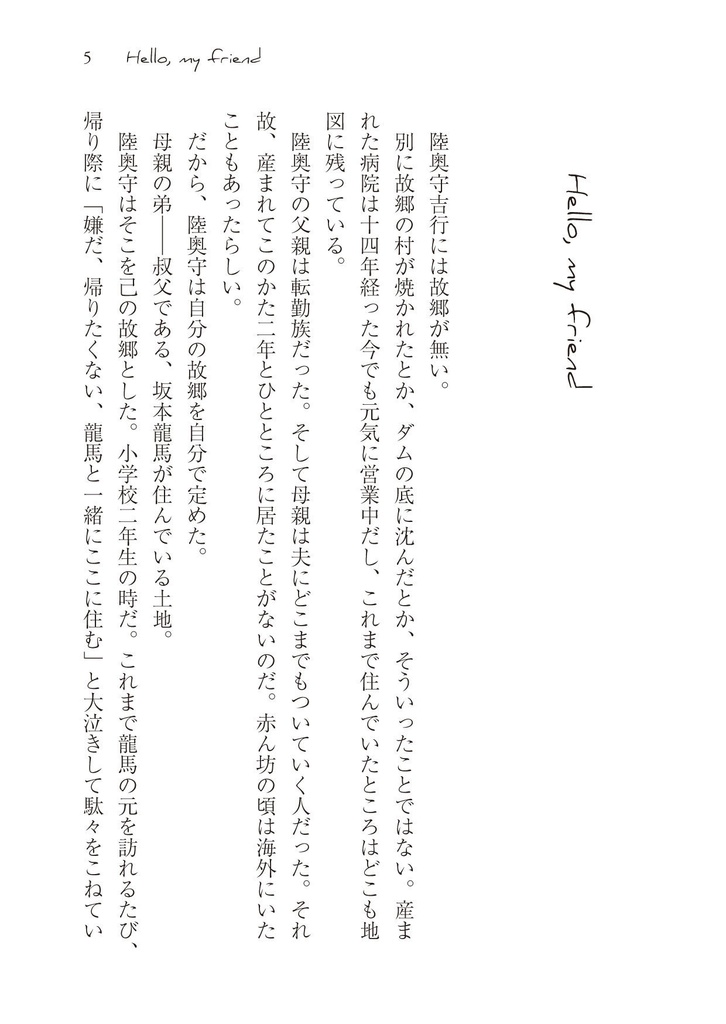 5 Hello, my friend
Hello, my friend
陸奥守吉行には故郷が無い。
別に故郷の村が焼かれたとか、ダムの底に沈んだとか、そういったことではない。産ま
れた病院は十四年経った今でも元気に営業中だし、これまで住んでいたところはどこも地
図に残っている。
陸奥守の父親は転勤族だった。そして母親は夫にどこまでもついていく人だった。それ
故、産まれてこのかた二年とひとところに居たことがないのだ。赤ん坊の頃は海外にいた
こともあったらしい。
だから、陸奥守は自分の故郷を自分で定めた。
母親の弟――叔父である、坂本龍馬が住んでいる土地。
陸奥守はそこを己の故郷とした。小学校二年生の時だ。これまで龍馬の元を訪れるたび、
帰り際に「嫌だ、帰りたくない、龍馬と一緒にここに住む」と大泣きして駄々をこねてい